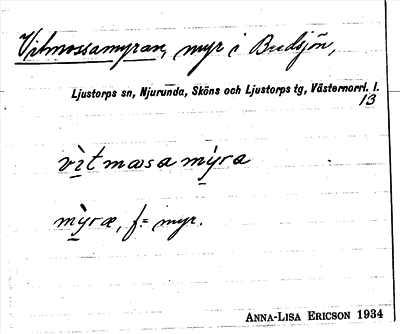 Vitmossamyran, myr i Budsjön,
Ljustorps sn, Njurunda, Sköns och Ljustorps tg, Västernorrl. l.
13
vìtmåsamýra
mỳræ, f= myr.
ANNA-LISA ERICSON 1934